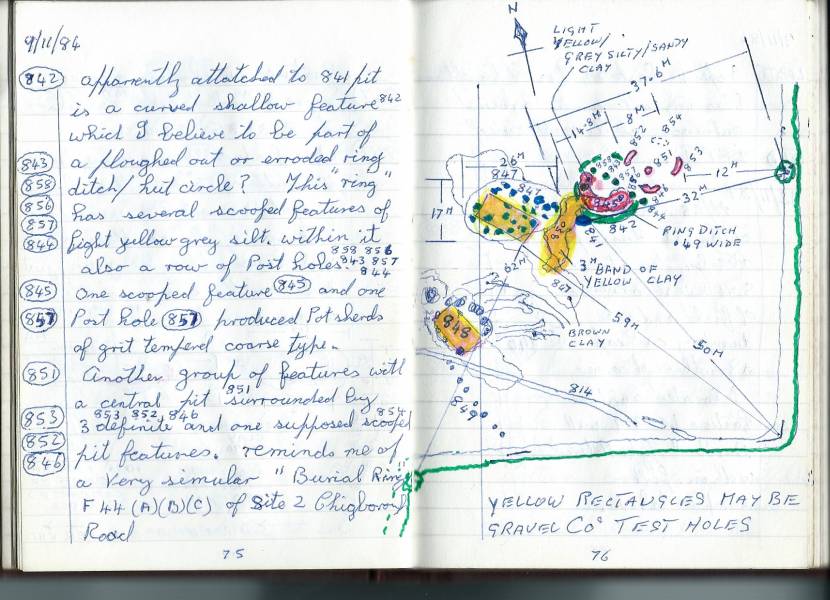 9/11/84
842 apparently attatched to 841 pit
is a curved shallow feature 842
which I believe to be part of
843 a ploughed out or erroded ring
858 ditch/hut circle? This "ring"
856 has several scooped features of
857
844 light yellow grey silt. within it
858 856
also a row of Post holes. 843 857
844
845 One scooped feature 845 and one
857 Post hole 857 produced Pot sherds
of grit tempered coarse type.
851 Another group of features with
a central pit 851 surrounded by
853 853, 852, 846 854
3 definite and one supposed scooped
852 pit features. reminds me of
846 a very simular "Burial Ring"
F44 (A)(B)(C) of Site 2 Chigborough
Road
75
N
LIGHT
YELLOW/
GREY SILTY/SANDY
CLAY
37·6M
14·8M
8M
852
854
851
853
12M
32M
26M
847
847
17M
845
846
854
842
841
850
RING DITCH
·49 WIDE
3M BAND OF
YELLOW CLAY
62M
847
BROWN
CLAY
59M
50M
848
849
814
YELLOW RECTANGLES MAY BE
GRAVEL Co's TEST HOLES
76